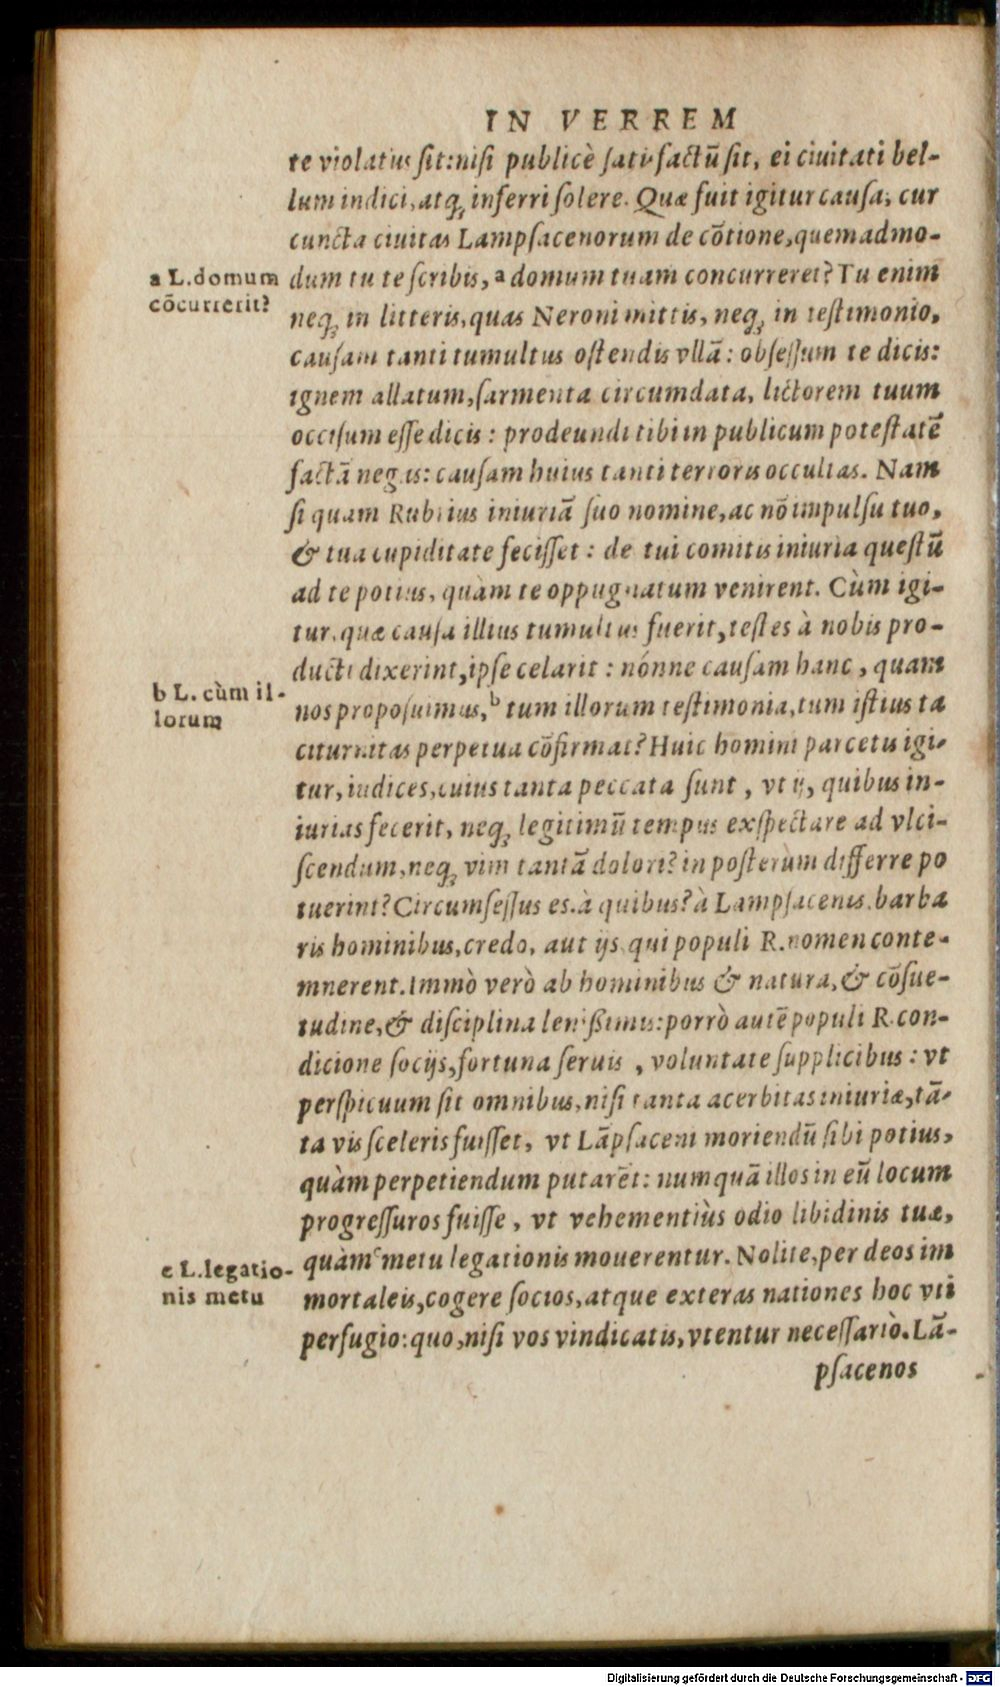 IN VERREM
te violatus sit: nisi publicè satisfactũ sit, ei ciuitati bel-
lum indici, atq; inferri solere. Quæ fuit igitur causa, cur
cuncta ciuitas Lampsacenorum de cõtione, quemadmo-
a L. domum
cõcurrerit?
dum tu te scribis, ᵃ domum tuam concurreret? Tu enim
neq; in litteris, quas Neroni mittis, neq; in testimonio,
causam tanti tumultus ostendis vllã: obsessum te dicis:
ignem allatum, sarmenta circumdata, lictorem tuum
occisum esse dicis: prodeundi tibi in publicum potestatẽ
factã negas: causam huius tanti terroris occultas. Nam
si quam Rubrius iniuriã suo nomine, ac nõ impulsu tuo,
& tua cupiditate fecisset: de tui comitis iniuria questũ
ad te potius, quàm te oppugnatum venirent. Cùm igi-
tur, quæ causa illius tumultus fuerit, testes à nobis pro-
ducti dixerint, ipse celarit: nónne causam hanc, quam
b L. cùm il-
lorum
nos proposuimus, ᵇ tum illorum testimonia, tum istius ta
citurnitas perpetua cõfirmat? Huic homini parcetis igi-
tur, iudices, cuius tanta peccata sunt, vt ij, quibus in-
iurias fecerit, neq; legitimũ tempus exspectare ad vlci-
scendum, neq; vim tantã dolori? in posterùm differre po
tuerint? Circumsessus es. à quibus? à Lampsacenis. barba
ris hominibus, credo, aut ijs qui populi R. nomen conte-
mnerent. Immò verò ab hominibus & natura, & cõsue-
tudine, & disciplina lenißimis: porrò autẽ populi R. con-
dicione socijs, fortuna seruis, voluntate supplicibus: vt
perspicuum sit omnibus, nisi tanta acerbitas iniuriæ, tã-
ta vis sceleris fuisset, vt Lãpsaceni moriendũ sibi potius,
quàm perpetiendum putarẽt: numquã illos in eũ locum
progressuros fuisse, vt vehementiùs odio libidinis tuæ,
c L. legatio-
nis metu
quàm ᶜ metu legationis mouerentur. Nolite, per deos im
mortaleis, cogere socios, atque exteras nationes hoc vti
perfugio: quo, nisi vos vindicatis, vtentur necessariò. Lã-
psacenos
Digitalisierung gefördert durch die Deutsche Forschungsgemeinschaft - DFG